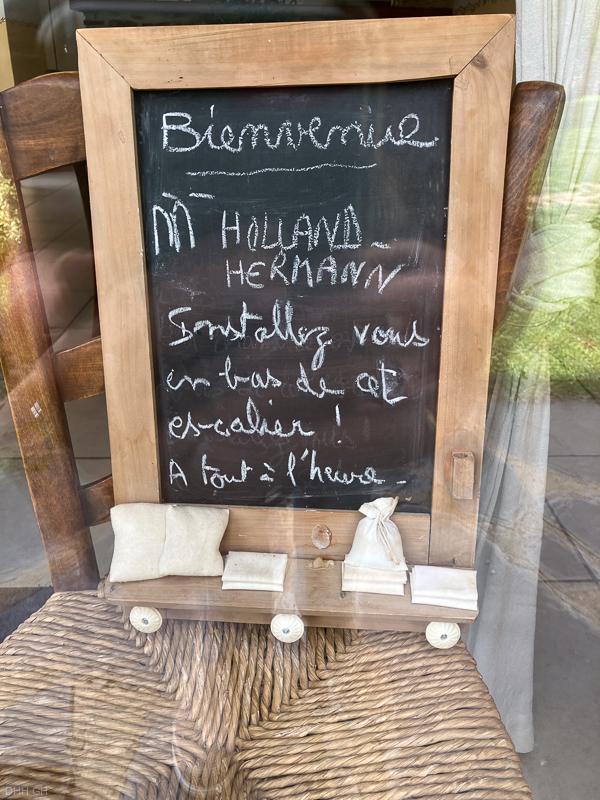 Bienvenue
M̄ HOLLAND_
HERMANN
Installez vous
en bas de cet
escalier !
A tout à l'heure_
DHH GH